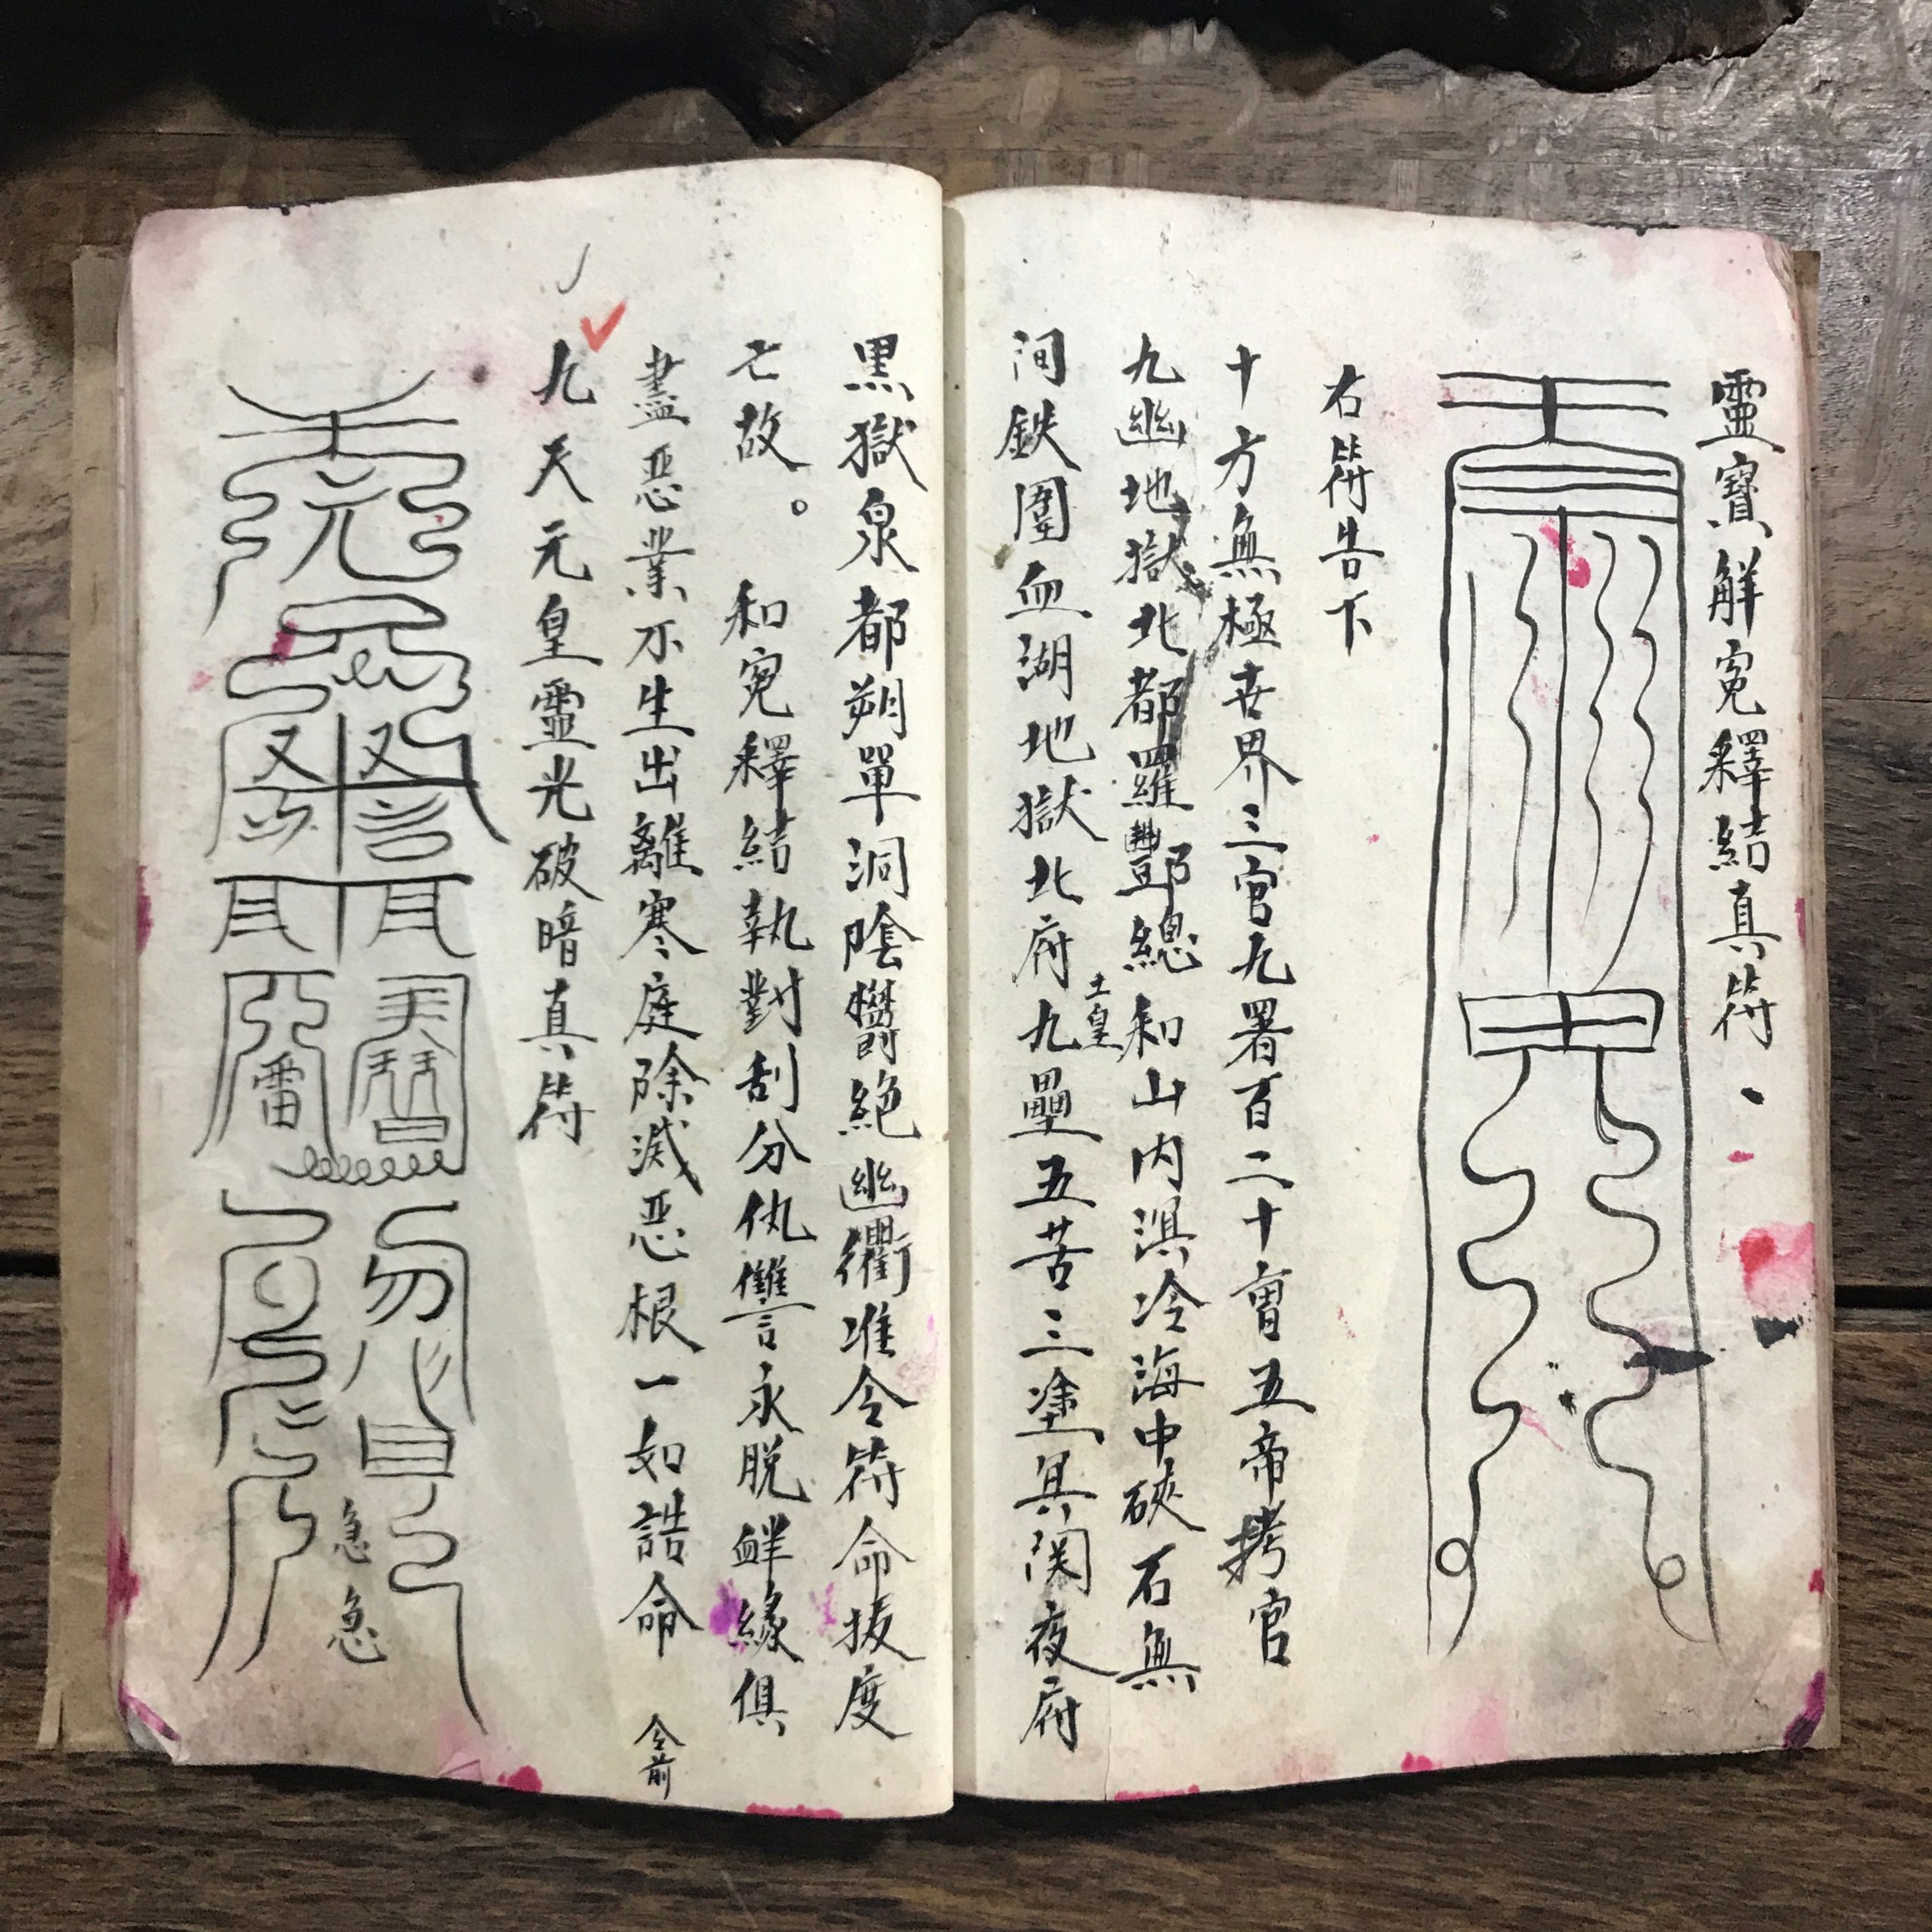 靈寶解冤釋結真符
右符告下
十方無極世界三官九署百二十曺五帝拷官
九幽地獄北都羅酆總和山内溟冷海中硤石無
间鉄圍血湖地獄北府九壘五苦三塗其関夜府
土皇
黑獄泉都朔單洞陰欝絶幽衢准令符命拔度
亡故。和寃釋結執對刮分仇讐永脱鲜緣俱
盡惡業不生出離寒庭除滅惡根一如誥命
仝前
九天元皇靈光破暗真符
急急